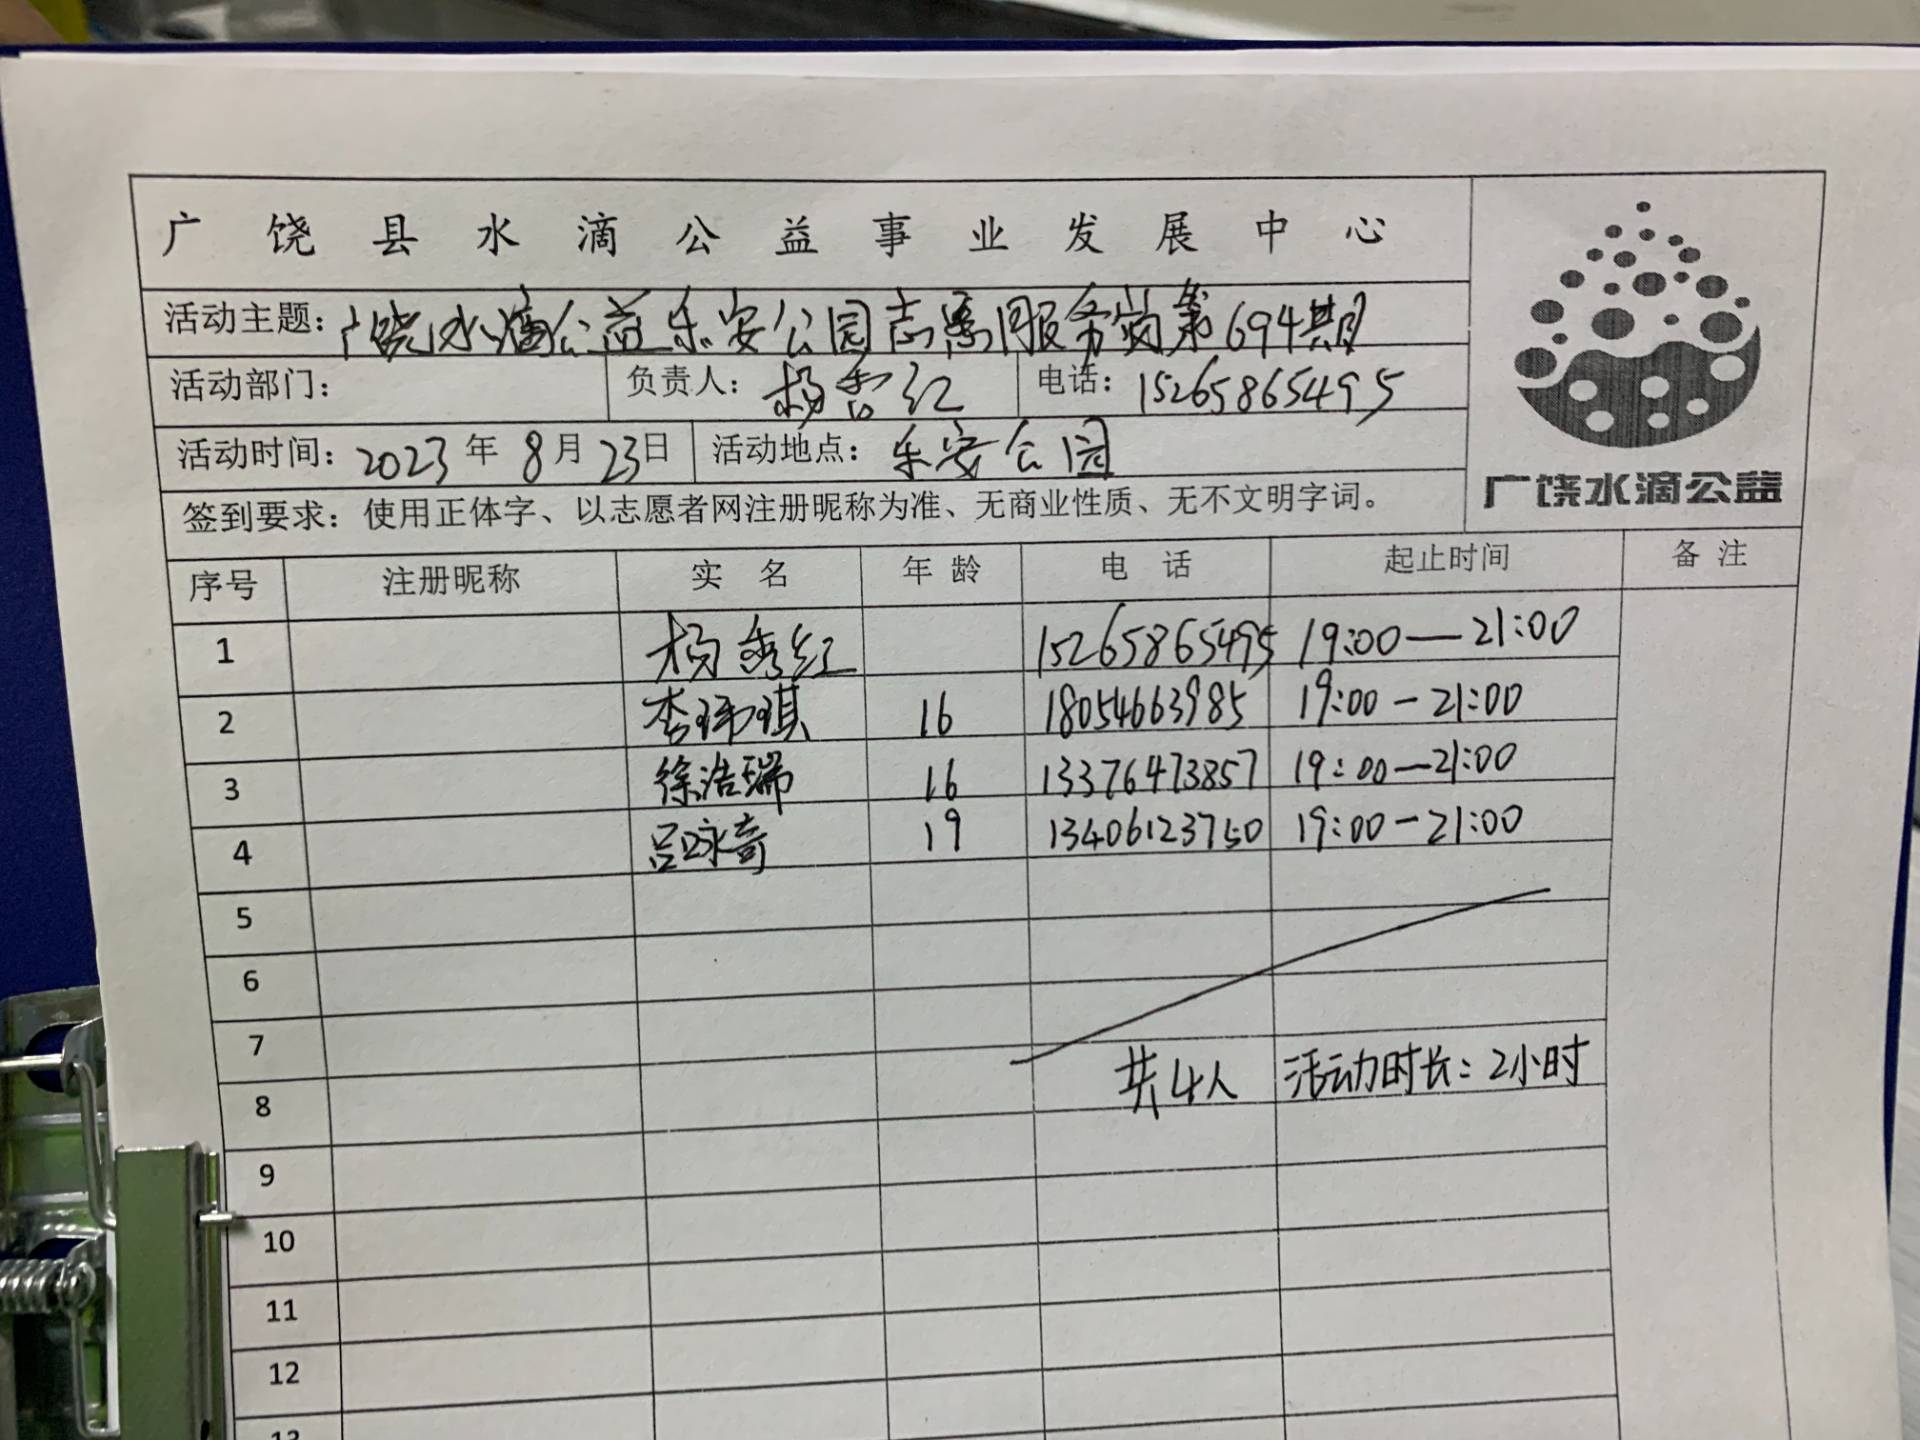 广饶县水滴公益事业发展中心
活动主题：广饶水滴公益乐安公园志愿服务岗第694期
广饶水滴公益
活动部门： 负责人：杨秀红 电话：15265865495
活动时间：2023年8月23日 活动地点：乐安公园
签到要求：使用正体字、以志愿者网注册昵称为准、无商业性质、无不文明字词。
序号 注册昵称 实名 年龄 电话 起止时间 备注
1 杨秀红 15265865495 19:00—21:00
2 李玮琪 16 18054663985 19:00-21:00
3 徐浩瑞 16 13376473857 19:00—21:00
4 吕咏奇 19 13406123750 19:00-21:00
5
6
7
共4人 活动时长：2小时
8
9
10
11
12
13